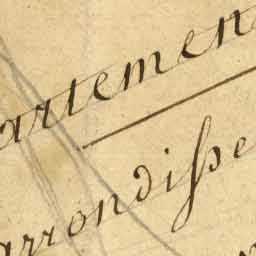 artemen
arrondiſse